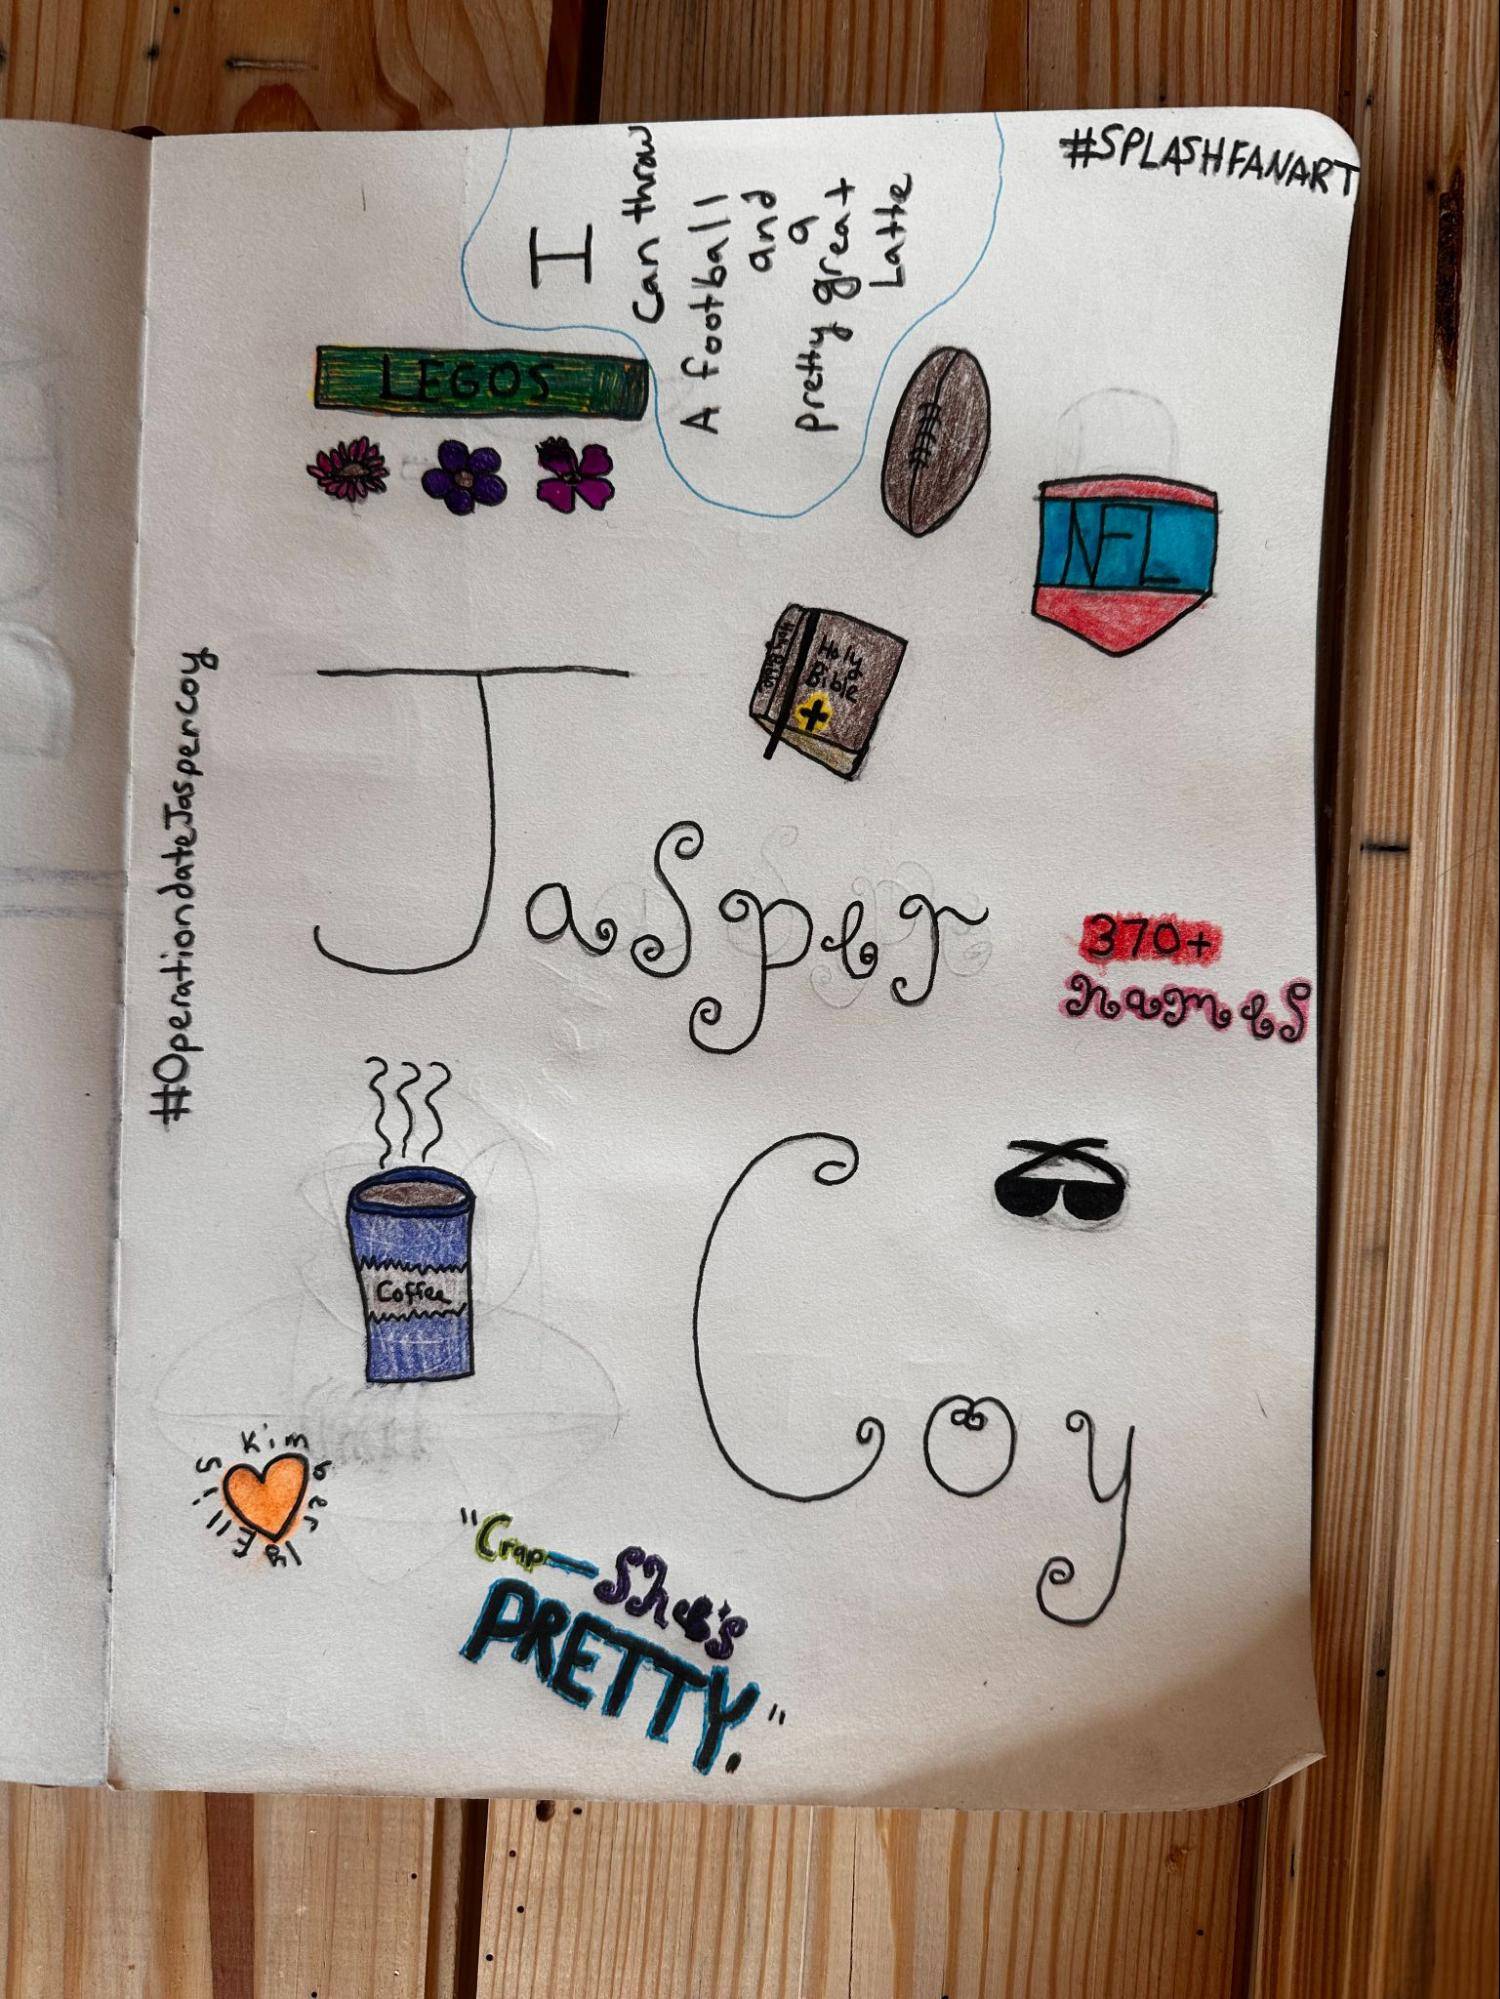 #SPLASHFANART
I
can throw
A football
and
a
pretty great
Latte
LEGOS
NFL
Holy Bible
Holy
Bible
#OperationdateJasperCoy
Jasper
370+
names
Coffee
Coy
Kimberly Ellis
"Crap—She's
PRETTY."